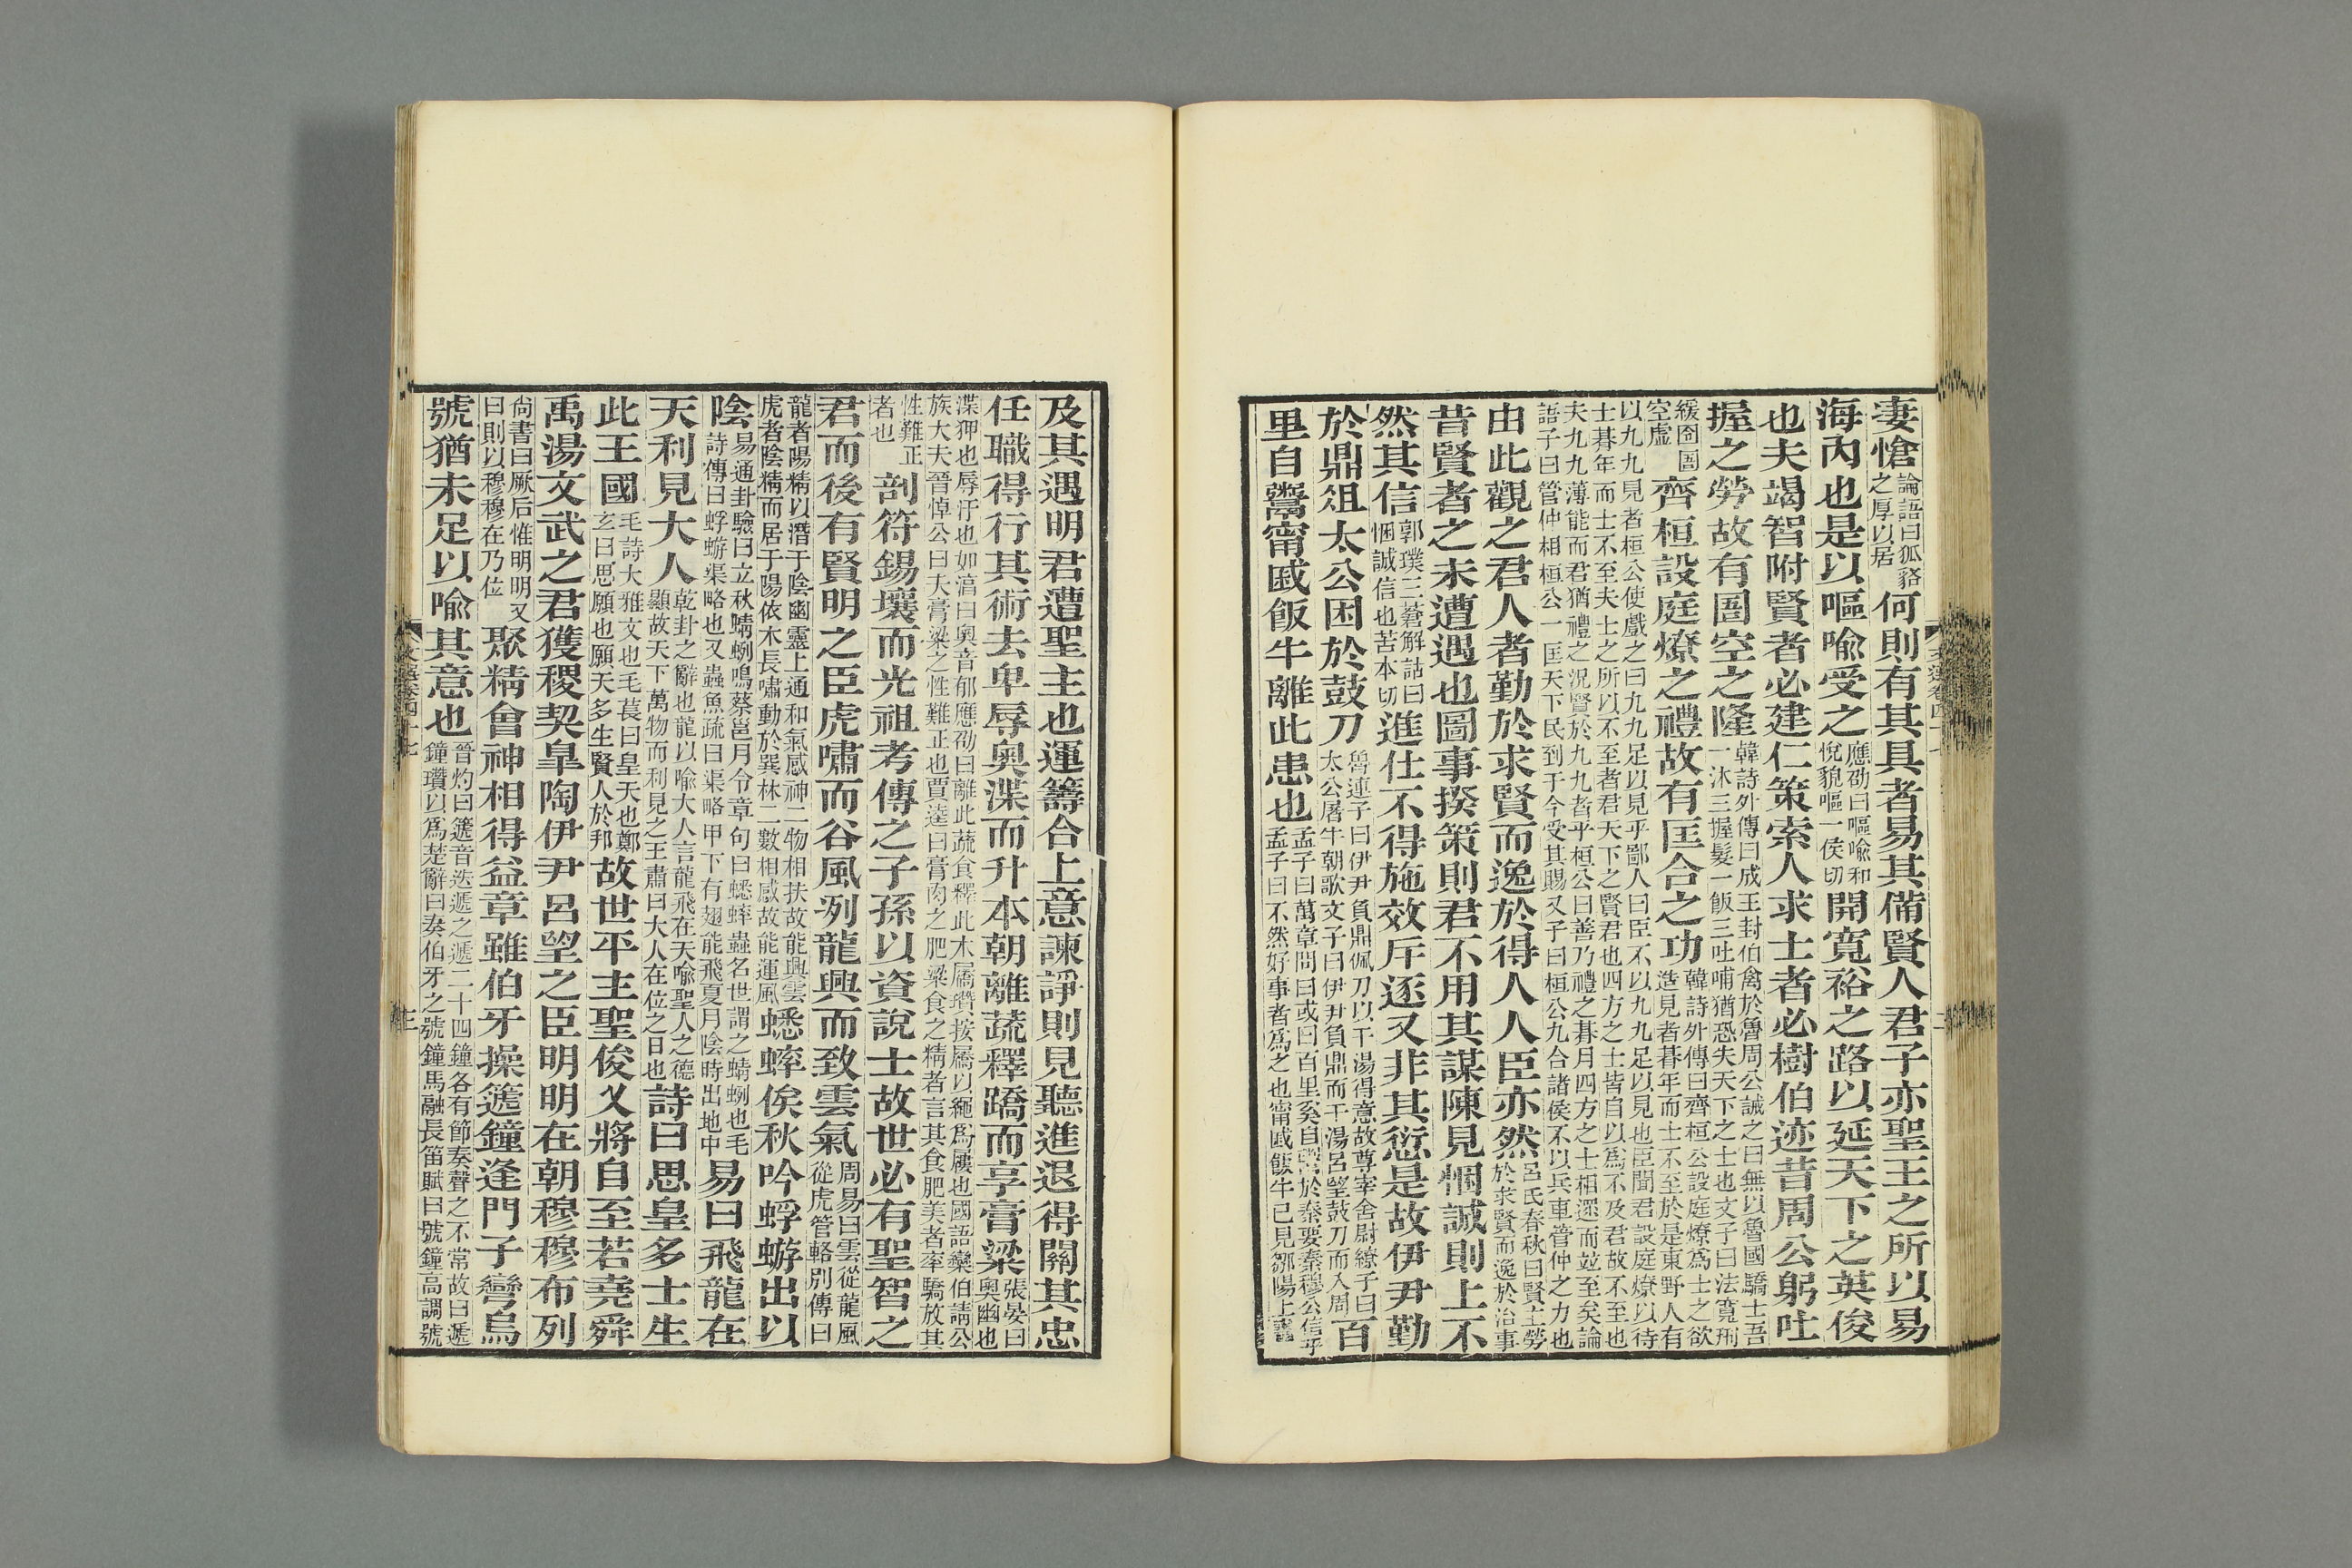 凄愴論語曰狐貉之厚以居何則有其具者易其備賢人君子亦聖王之所以易
海內也是以嘔喻受之應劭曰嘔喻和悅貌嘔一侯切開寬裕之路以延天下之英俊
也夫竭智附賢者必建仁策索人求士者必樹伯迹昔周公躬吐
握之勞故有圄空之隆韓詩外傳曰成王封伯禽於魯周公誡之曰無以魯國驕士吾一沐三握髮一飯三吐哺猶恐失天下之士也文子曰法寬刑
緩囹圄空虛齊桓設庭燎之禮故有匡合之功韓詩外傳曰齊桓公設庭燎爲士之欲造見者朞年而士不至於是東野人有
以九九見者桓公使戲之曰九九足以見乎鄙人曰臣不以九九足以見也臣聞君設庭燎以待
士朞年而士不至夫士之所以不至者君天下之賢君也四方之士皆自以爲不及君故不至也
夫九九薄能而君猶禮之況賢於九九者乎桓公曰善乃禮之朞月四方之士相選而竝至矣論
語子曰管仲相桓公一匡天下民到于今受其賜又子曰桓公九合諸侯不以兵車管仲之力也
由此觀之君人者勤於求賢而逸於得人人臣亦然呂氏春秋曰賢主勞於求賢而逸於治事
昔賢者之未遭遇也圖事揆策則君不用其謀陳見悃誠則上不
然其信郭璞三蒼解詁曰悃誠信也苦本切進仕不得施效斥逐又非其愆是故伊尹勤
於鼎俎太公困於鼓刀魯連子曰伊尹負鼎佩刀以干湯得意故尊宰舍尉繚子曰太公屠牛朝歌文子曰伊尹負鼎而干湯呂望鼓刀而入周百
里自鬻甯戚飯牛離此患也孟子曰萬章問曰或曰百里奚自鬻於秦要秦穆公信乎孟子曰不然好事者爲之也甯戚飯牛已見鄒陽上書
及其遇明君遭聖主也運籌合上意諫諍則見聽進退得關其忠
任職得行其術去卑辱奧渫而升本朝離蔬釋蹻而享膏粱張晏曰奧幽也
渫狎也辱汙也如淳曰奧音郁應劭曰離此蔬食釋此木屩瓚按屩以繩爲屨也國語欒伯請公
族大夫晉悼公曰夫膏粱之性難正也賈逵曰膏肉之肥粱食之精者言其食肥美者率驕放其
性難正者也剖符錫壤而光祖考傳之子孫以資說士故世必有聖智之
君而後有賢明之臣虎嘯而谷風冽龍興而致雲氣周易曰雲從龍風從虎管輅別傳曰
龍者陽精以潛于陰幽靈上通和氣感神二物相扶故能興雲
虎者陰精而居于陽依木長嘯動於巽林二數相感故能運風蟋蟀俟秋吟蜉蝣出以
陰易通卦驗曰立秋蜻蛚鳴蔡邕月令章句曰蟋蟀蟲名世謂之蜻蛚也毛詩傳曰蜉蝣渠略也又蟲魚疏曰渠略甲下有翅能飛夏月陰時出地中易曰飛龍在
天利見大人乾卦之辭也龍以喻大人言龍飛在天喻聖人之德顯故天下萬物而利見之王肅曰大人在位之日也詩曰思皇多士生
此王國毛詩大雅文也毛萇曰皇天也鄭玄曰思願也願天多生賢人於邦故世平主聖俊乂將自至若堯舜
禹湯文武之君獲稷契皐陶伊尹呂望之臣明明在朝穆穆布列
尚書曰厥后惟明明又曰則以穆穆在乃位聚精會神相得益章雖伯牙操遞鐘逢門子彎烏
號猶未足以喻其意也晉灼曰遞音迭遞之遞二十四鐘各有節奏聲之不常故曰遞鐘瓚以爲楚辭曰奏伯牙之號鐘馬融長笛賦曰號鐘高調號
文選卷四十七
三